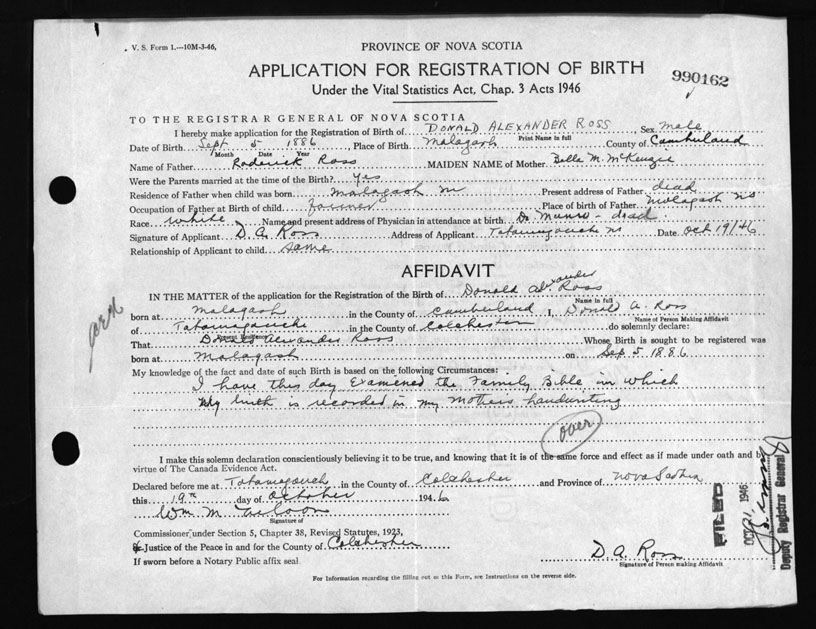 1
V. S. Form 1.—10M-3-46,
PROVINCE OF NOVA SCOTIA
APPLICATION FOR REGISTRATION OF BIRTH
990162
Under the Vital Statistics Act, Chap. 3 Acts 1946
TO THE REGISTRAR GENERAL OF NOVA SCOTIA
I hereby make application for the Registration of Birth of DONALD ALEXANDER ROSS, Sex male
Print Name in full
Date of Birth Sept 5 1886, Place of Birth Malagash County of Cumberland
Month Date Year
Name of Father Roderick Ross MAIDEN NAME of Mother Belle M. McKenzie
Were the Parents married at the time of the Birth? Yes
Residence of Father when child was born Malagash Present address of Father dead
Occupation of Father at Birth of child farmer Place of birth of Father Malagash NS
Race white Name and present address of Physician in attendance at birth Dr Munro - dead.
Signature of Applicant D. A. Ross Address of Applicant Tatamagouche NS Date Oct 19/46
Relationship of Applicant to child same
AFFIDAVIT
IN THE MATTER of the application for the Registration of the Birth of Donald Alexander Ross
Name in full
born at Malagash in the County of Cumberland I, Donald A. Ross
Name of Person Making Affidavit
of Tatamagouche in the County of Colchester do solemnly declare:
That Donald Alexander Ross Whose Birth is sought to be registered was
born at Malagash on Sep 5. 1886
My knowledge of the fact and date of such Birth is based on the following Circumstances:
I have this day Examened the Family Bible in which
My birth is recorded in my Mothers handwriting
over
I make this solemn declaration conscientiously believing it to be true, and knowing that it is of the same force and effect as if made under oath and by
virtue of The Canada Evidence Act.
Declared before me at Tatamagouch in the County of Colchester and Province of Nova Scotia
this 19th day of October 1946
Wm M
Signature of
Commissioner, under Section 5, Chapter 38, Revised Statutes, 1923,
Justice of the Peace in and for the County of Colchester
If sworn before a Notary Public affix seal
D. A. Ross
Signature of Person making Affidavit
For Information regarding the filling out on this Form, see Instructions on the reverse side.
FILED
OCT 21 1946
Deputy Registrar General